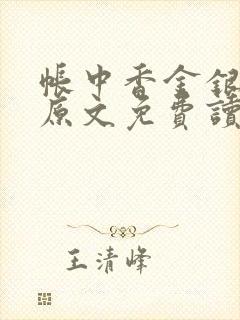 帳中香金銀
原文免費讀
王清峰